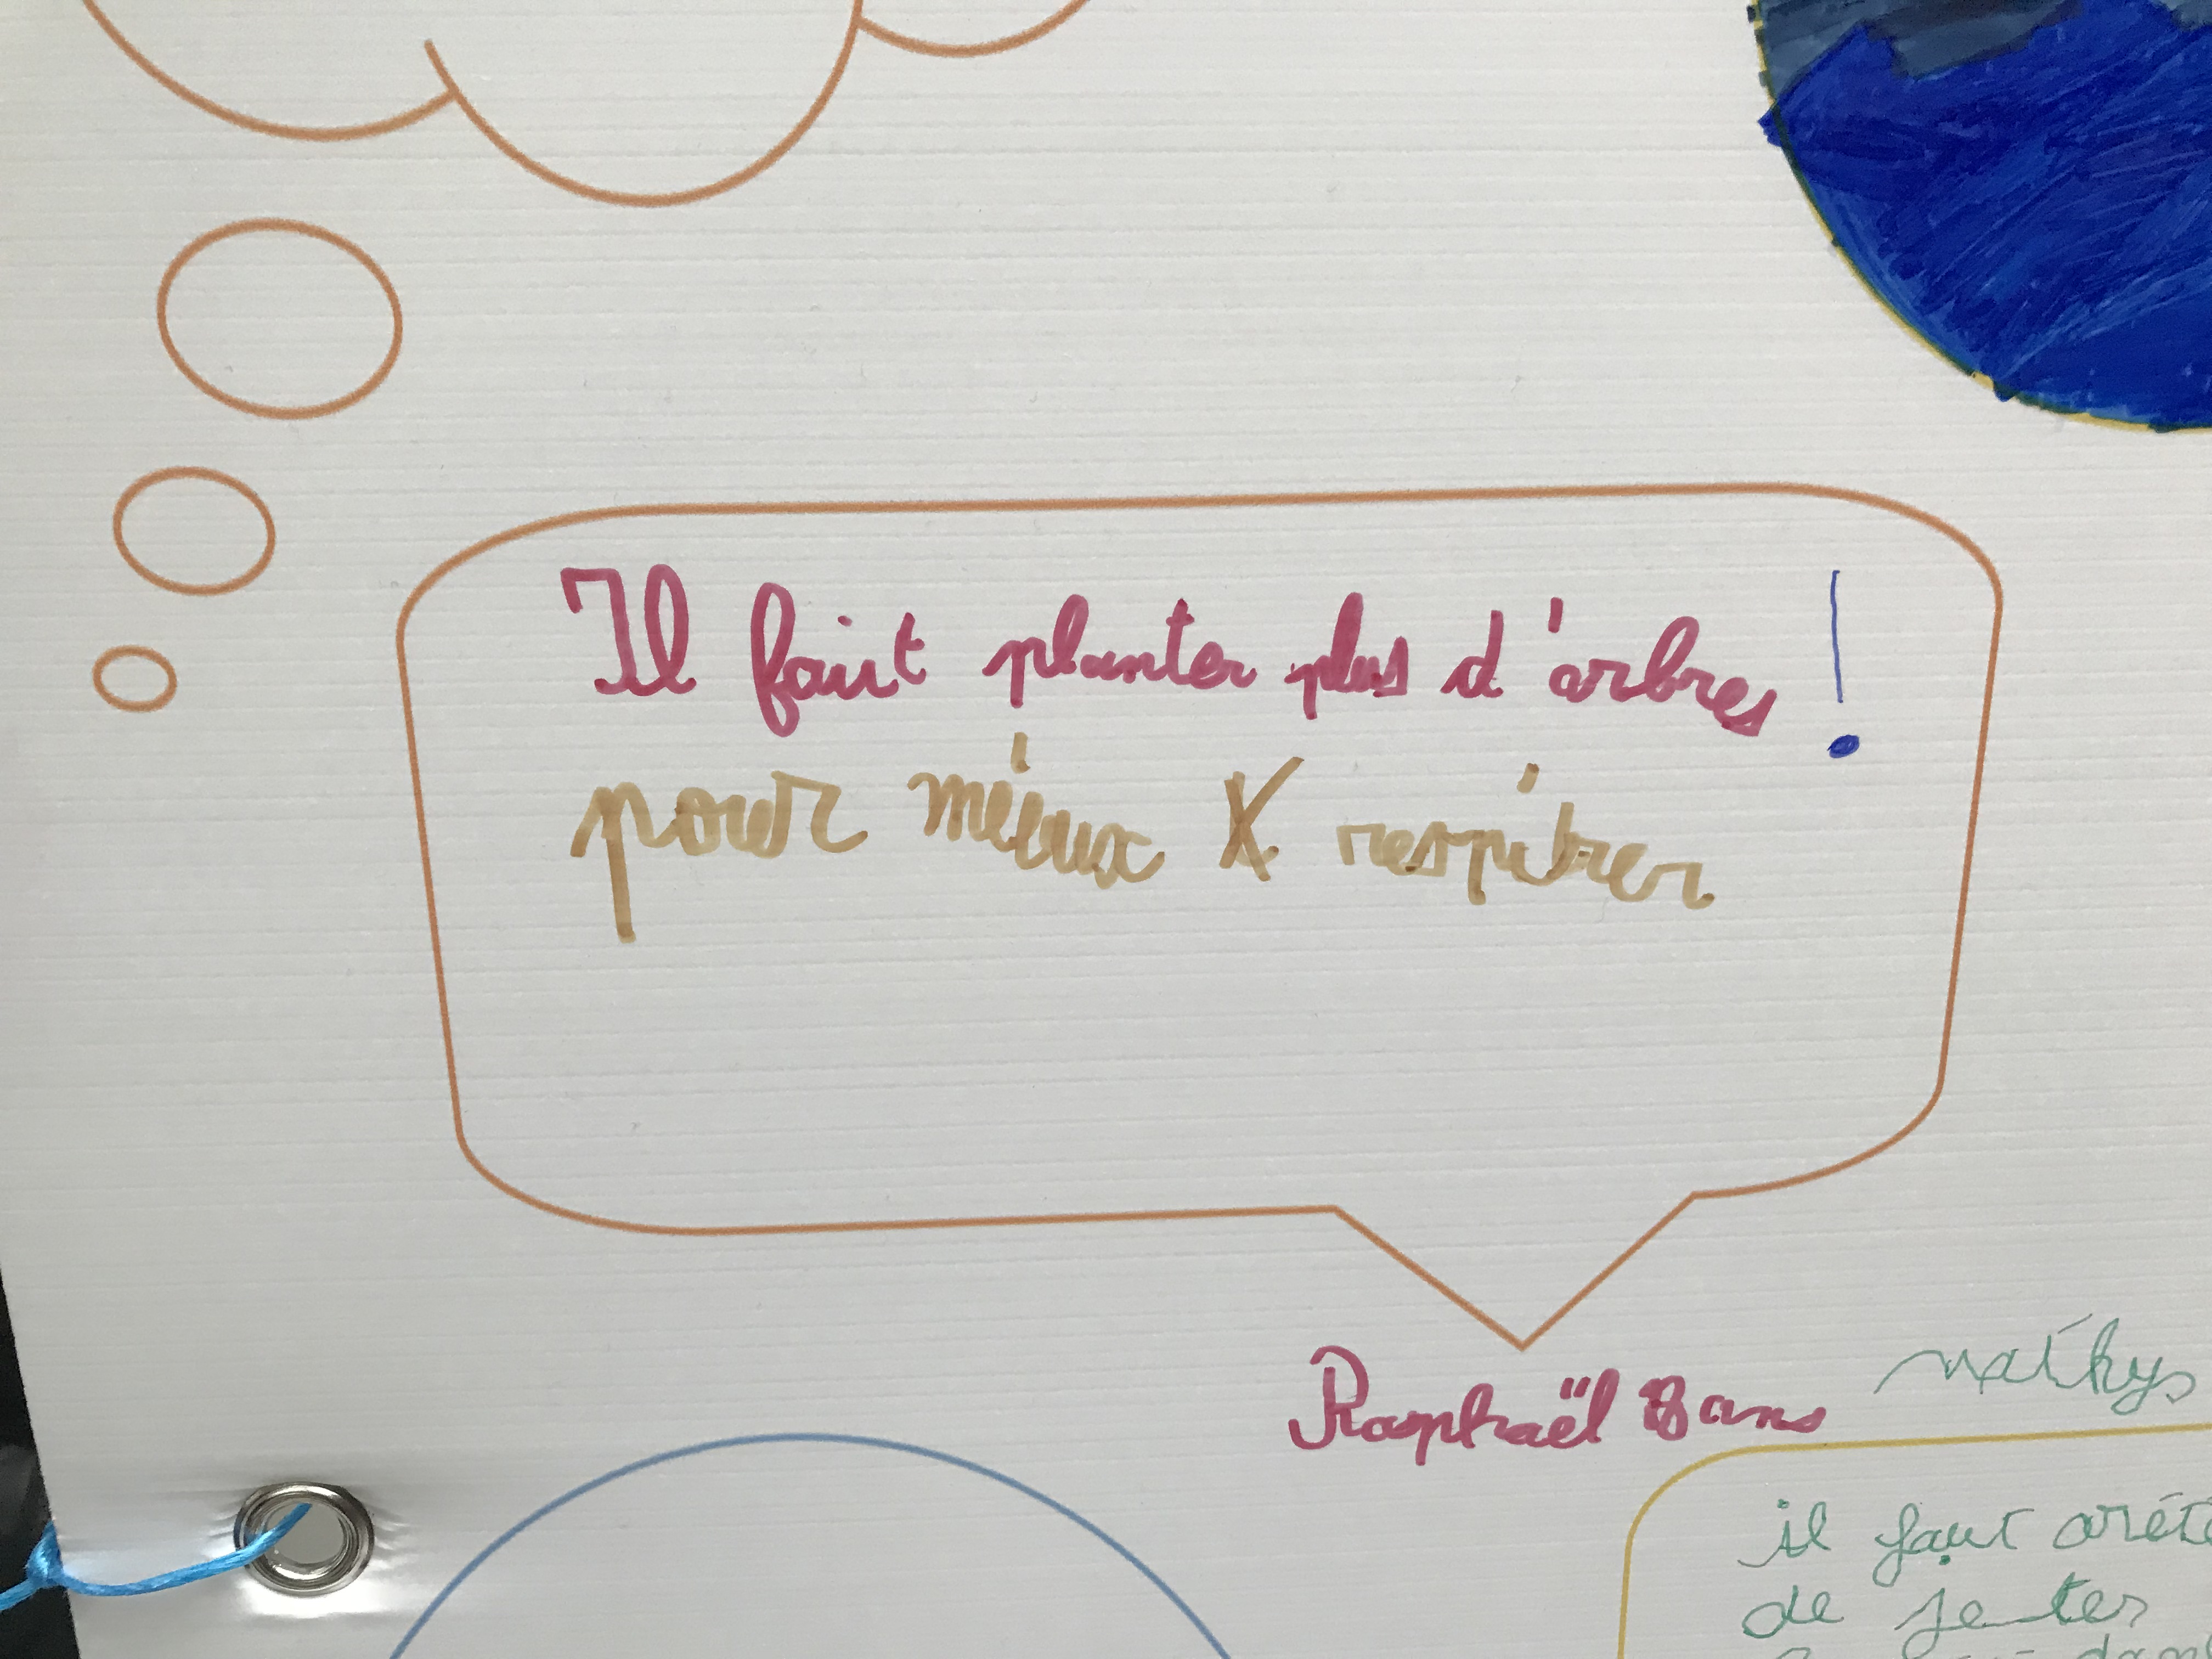 Il faut planter plus d'arbres !
pour mieux X respirer
Raphaël 8 ans
mathys
il faut arété
de jeter